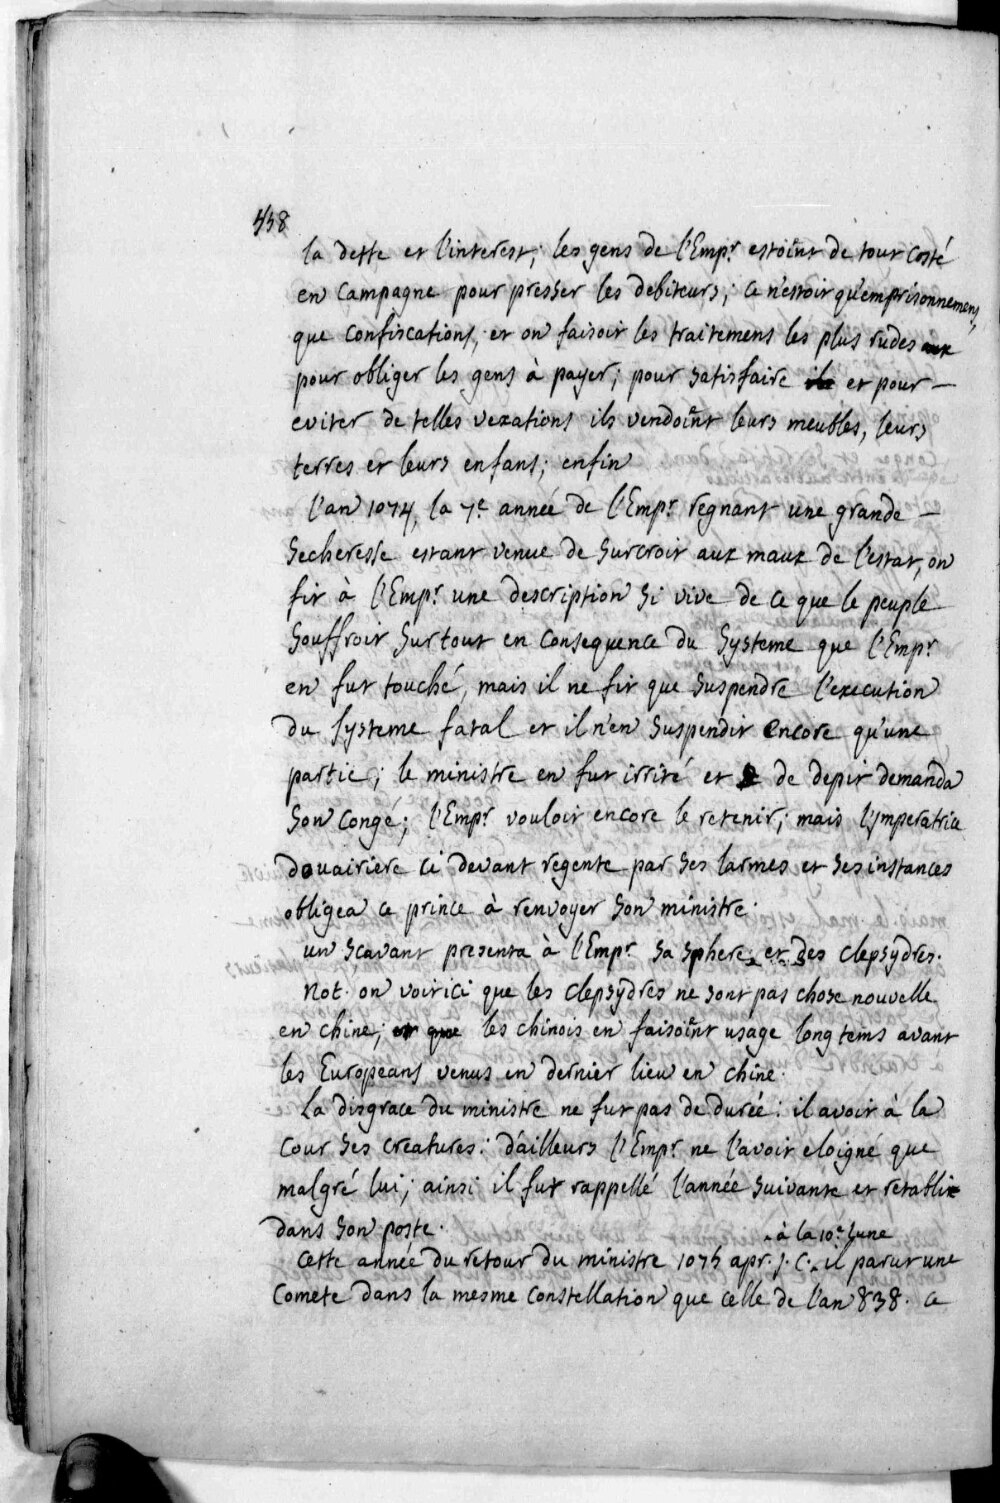 458
la dette et l'interest; les gens de l'Empr. estoient de tout costé
en campagne pour presser les debiteurs; ce n'estoit qu'emprisonnemens,
que confiscations, et on faisoit les traitemens les plus rudes aux
pour obliger les gens à payer; pour satisfaire et pour
eviter de telles vexations ils vendoient leurs meubles, leurs
terres et leurs enfans; enfin
l'an 1074, la 7e année de l'Empr. regnant une grande
secheresse estant venue de surcroit aux maux de l'estat, on
fit à l'Empr. une description si vive de ce que le peuple
souffroit surtout en consequence du systeme que l'Empr.
en fut touché, mais il ne fit que suspendre l'execution
du systeme fatal et il n'en suspendit encore qu'une
partie; le ministre en fut irrité et de depit demanda
son congé; l'Empr. vouloit encore le retenir; mais l'ymperatrice
douairiere ci devant regente par ses larmes et ses instances
obligea ce prince à renvoyer son ministre.
un scavant presenta à l'Empr. sa sphere, et des clepsydres.
Not. on voit ici que les clepsydres ne sont pas chose nouvelle
en chine; et que les chinois en faisoient usage long tems avant
les Européans venus en dernier lieu en chine.
La disgrace du ministre ne fut pas de durée: il avoit à la
cour ses creatures: d'ailleurs l'Empr. ne l'avoit eloigné que
malgré lui; ainsi il fut rappellé l'année suivante et retabli
dans son poste.
à la 10e lune
cette année du retour du ministre 1075 apr. J. C. il parut une
comete dans la mesme constellation que celle de l'an 838. ce